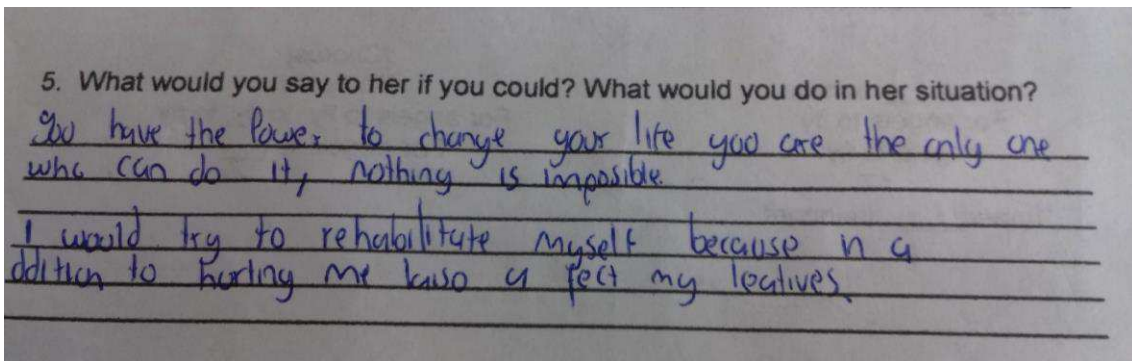 5. What would you say to her if you could? What would you do in her situation?
you have the Power to change your life you are the only one
who can do it, nothing is imposible.
I would try to rehabilitate myself because in a
ddition to hurting me I also a fect my leatives